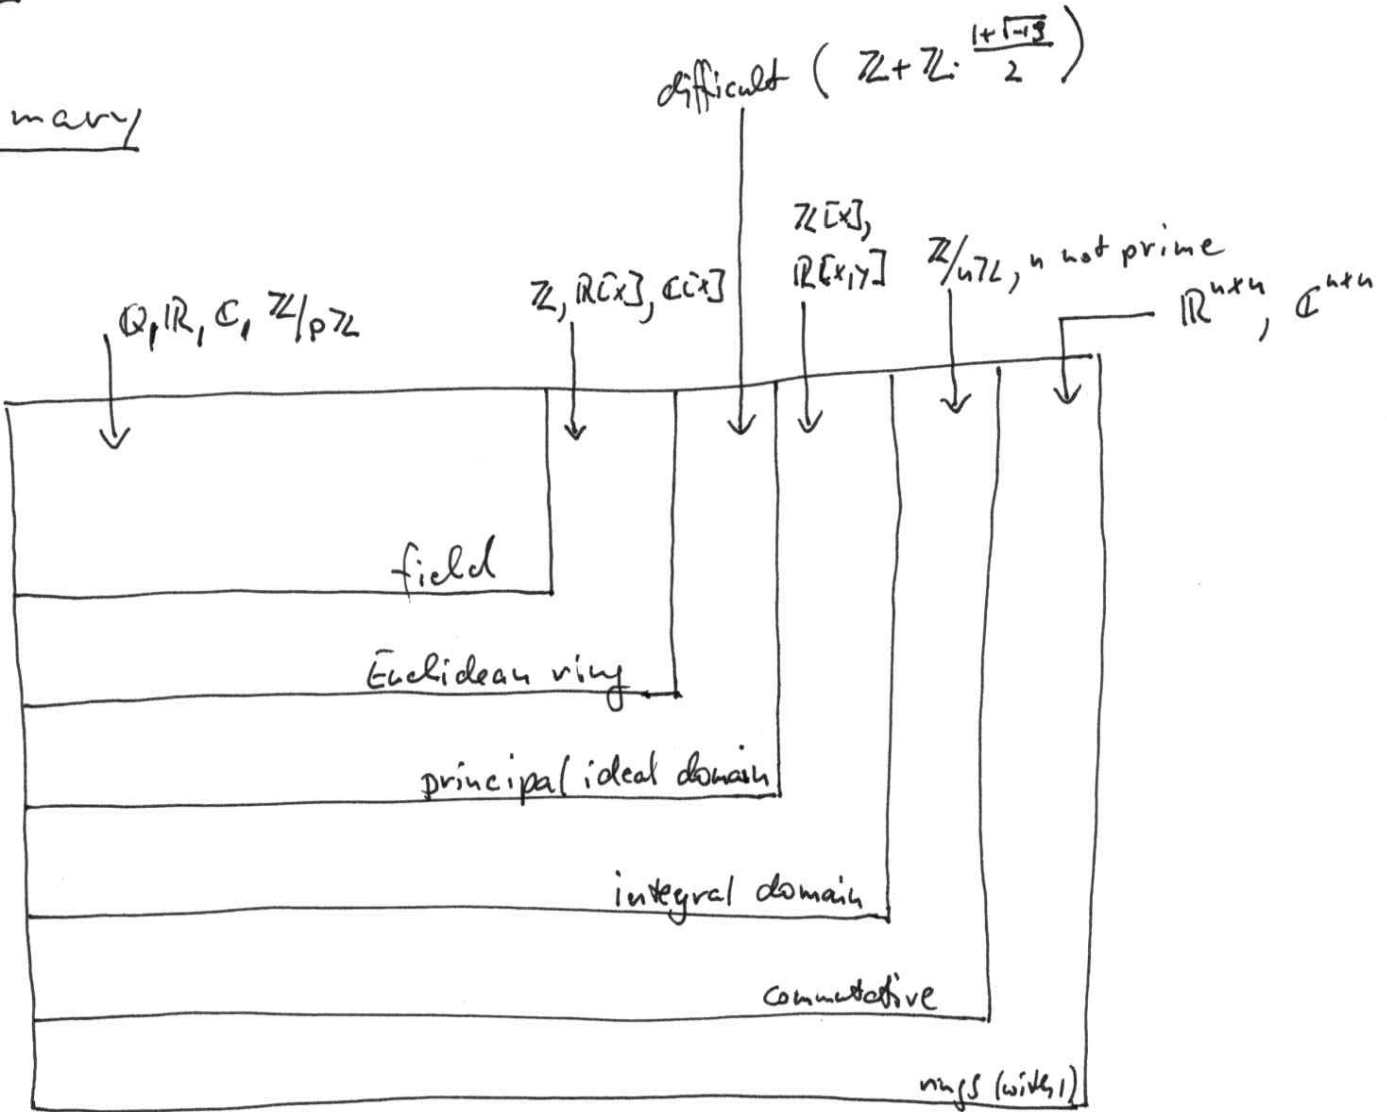 mary
difficult ( ℤ + ℤ · (1+√-19)/2 )
ℤ[x],
ℝ[x,y]
ℤ/nℤ, n not prime
ℝⁿˣⁿ, ℂⁿˣⁿ
ℤ, ℝ[x], ℂ[x]
ℚ, ℝ, ℂ, ℤ/pℤ
field
Euclidean ring
principal ideal domain
integral domain
commutative
rings (with 1)